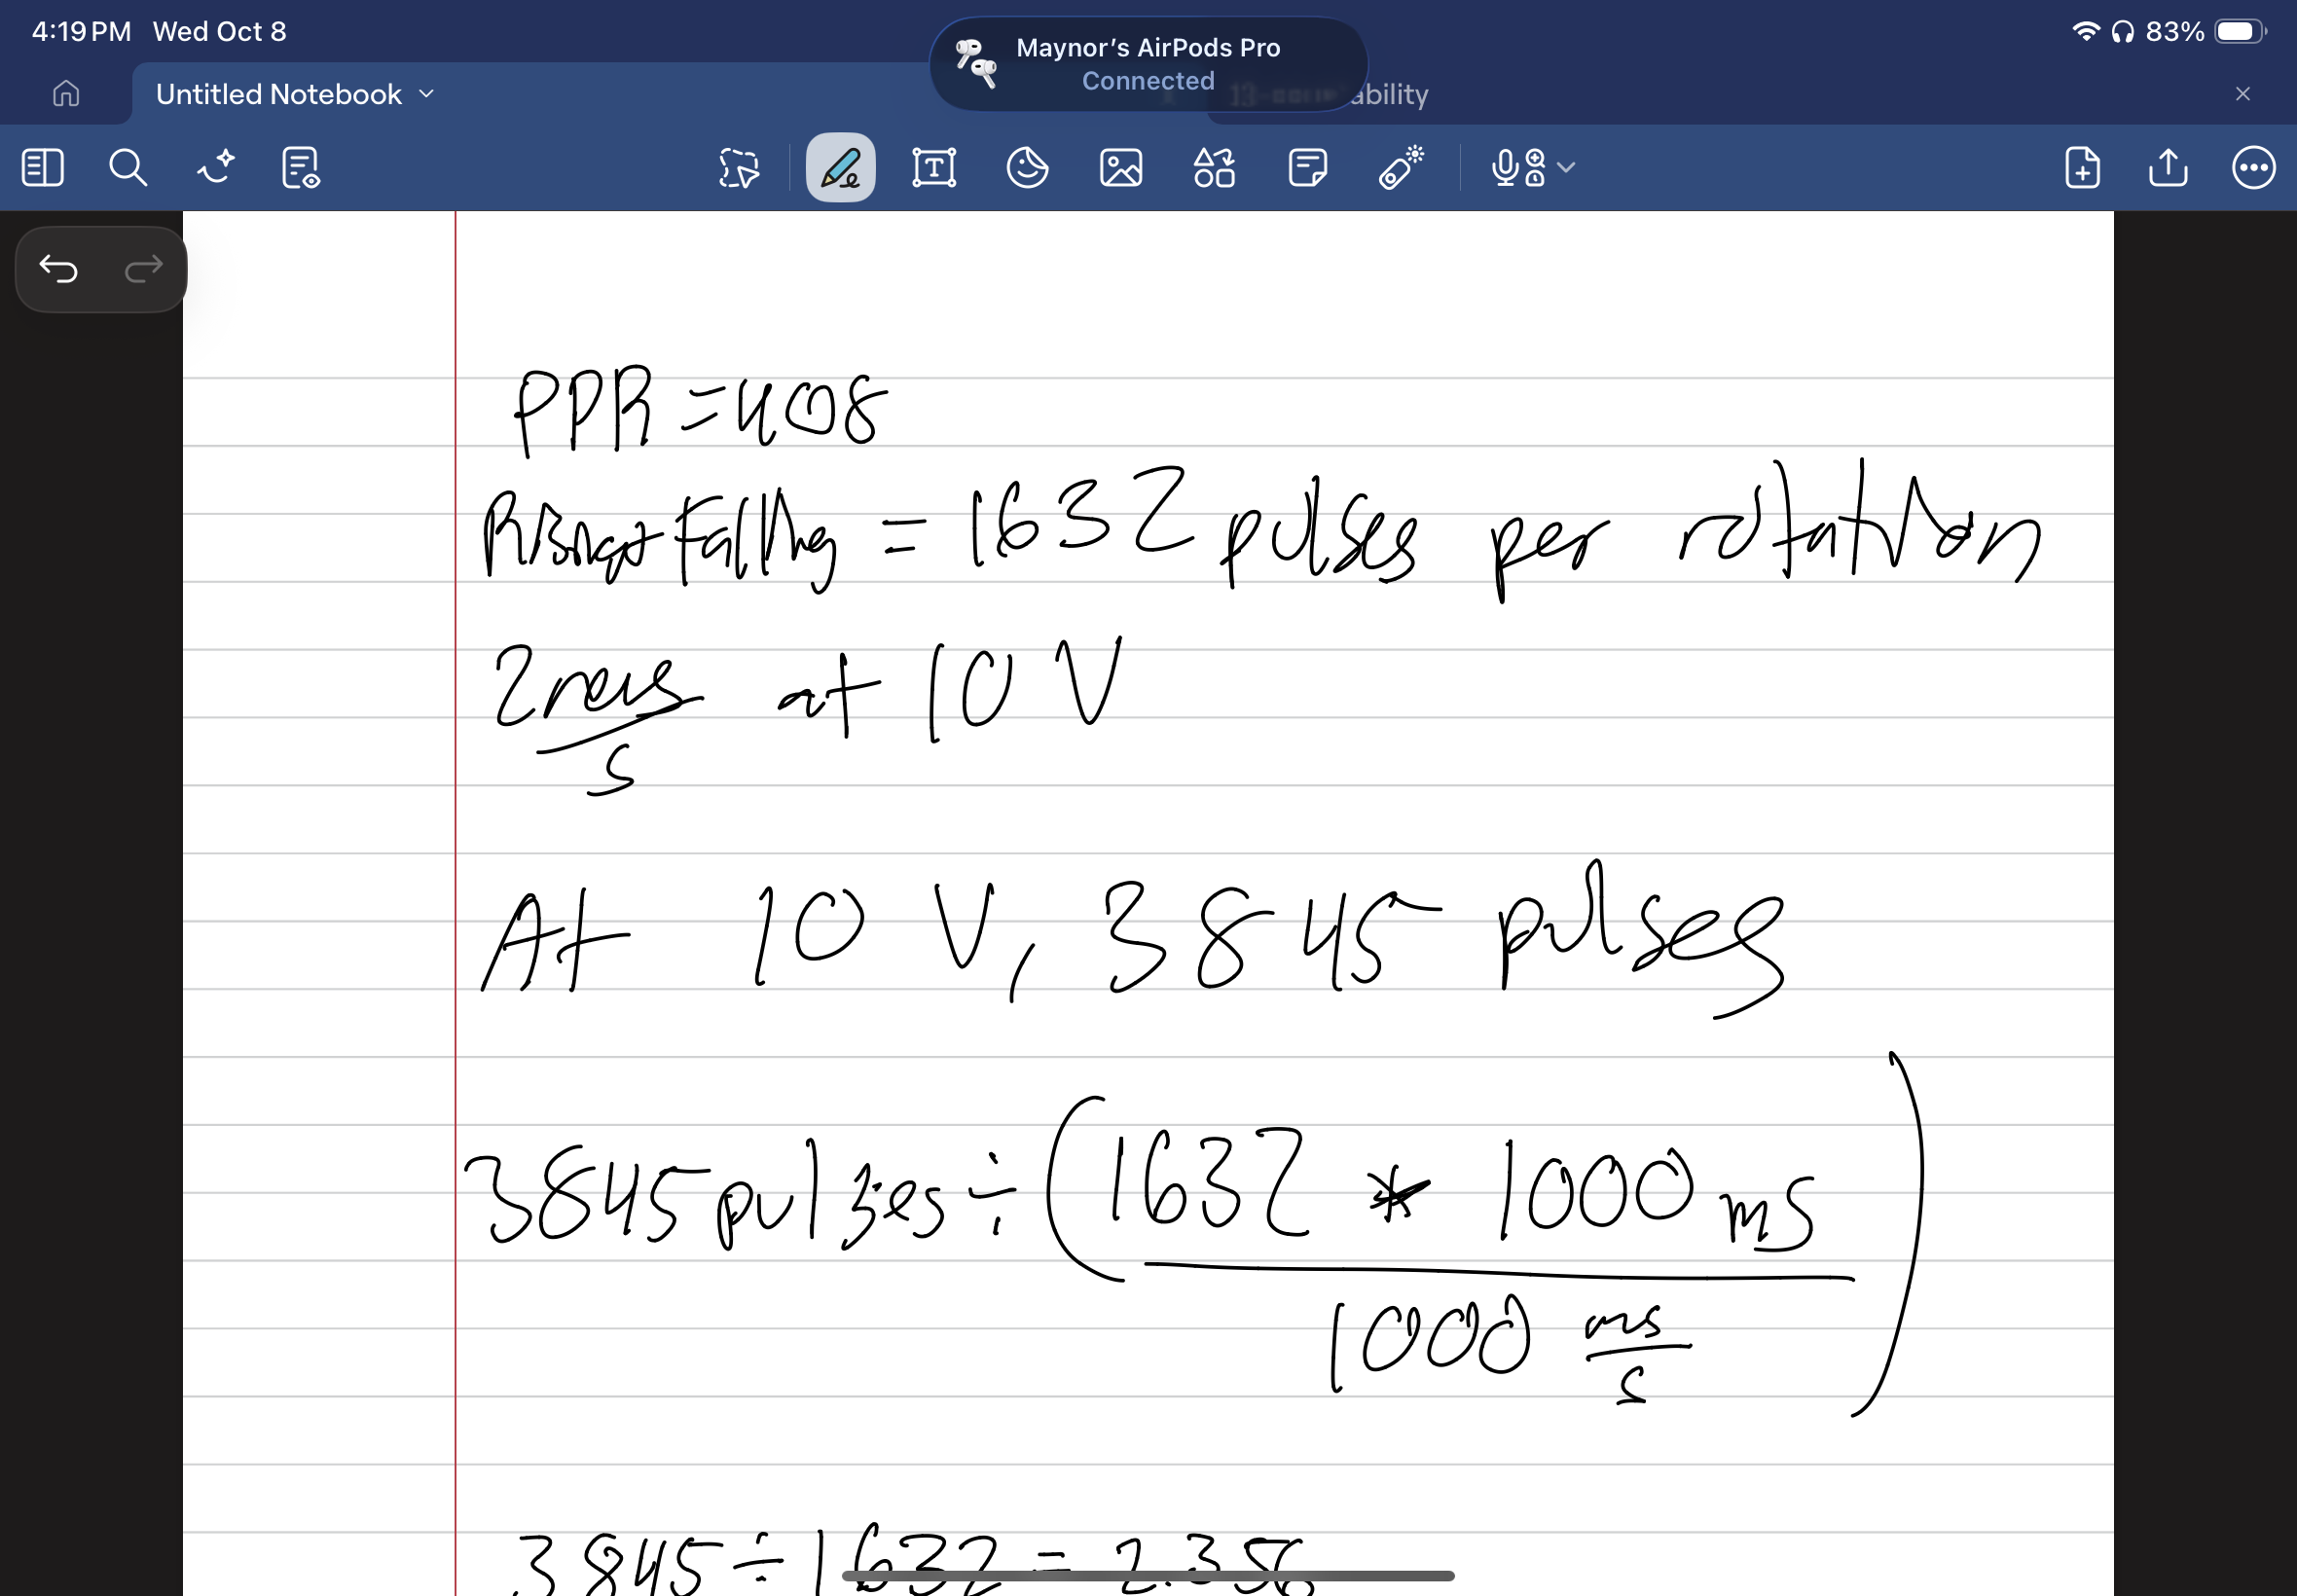 4:19 PM Wed Oct 8
Maynor's AirPods Pro
Connected
83%
Untitled Notebook
ability
PPR = 408
Rising + Falling = 1632 pulses per rotation
2 revs
s
at 10 V
At 10 V, 3845 pulses
3845 pulses ÷ (1632 * 1000 ms
1000 ms
s
)
3845 ÷ 1632 = 2.356